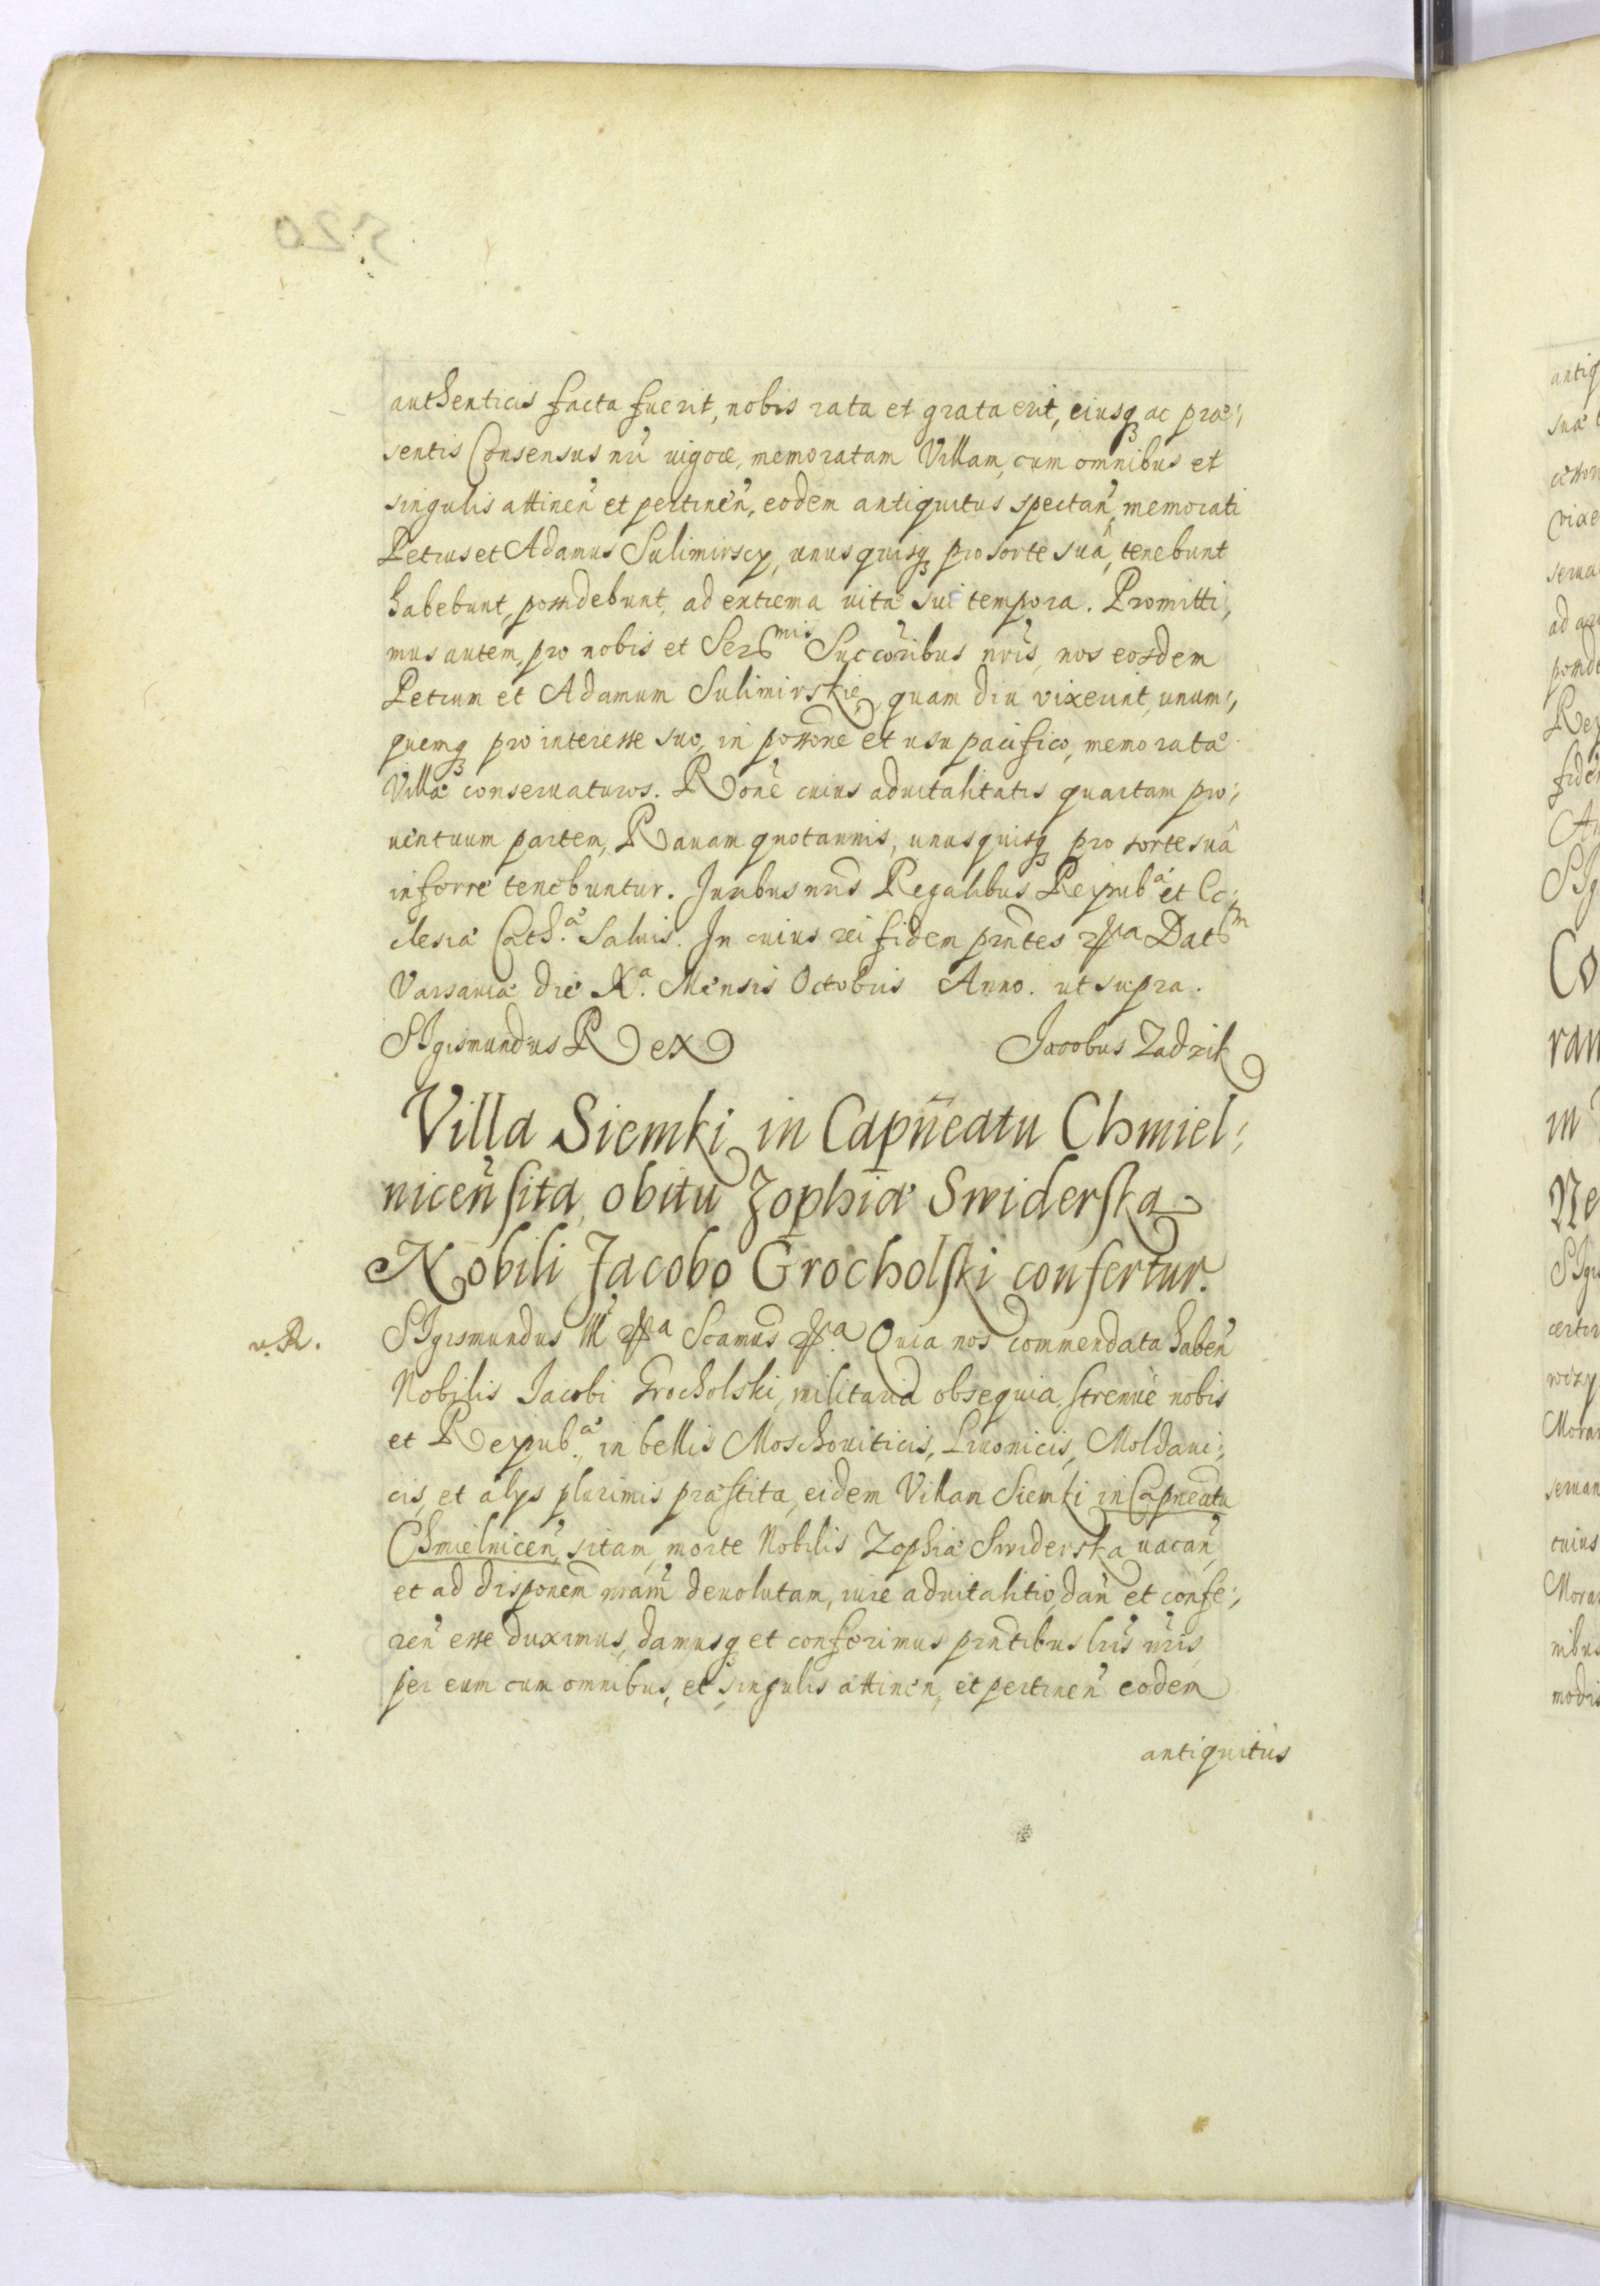 authenticis facta fuerit, nobis rata et grata erit, eiusq; ac præ,
sentis Consensus nri uigore, memoratam Villam, cum omnibus et
singulis attinen et pertinen, eodem antiquitus spectan, memorati
Petrus et Adamus Sulimirscy, unusquisq; pro sorte suâ, tenebunt
habebunt, possidebunt, ad extrema vitæ sui tempora. Promitti,
mus autem, pro nobis et Sermis Succoribus nris, nos eosdem
Petrum et Adamum Sulimirskie, quam diu vixerint, unum,
quemq; pro interesse suo, in possone et usu pacifico, memoratæ
Villæ conseruaturos. Rone cuius aduitalitatis quartam pro,
uentuum partem, Rauam quotannis, unusquisq; pro sorte suâ
inferre tenebuntur. Juribus nris Regalibus Reipubæ et Ec,
clesiæ Cath.æ Saluis. In cuius rei fidem prntes &a Datm
Varsauiæ die X.a Mensis Octobris Anno. ut supra.
SIgismundus Rex Jacobus Zadzik
Villa Siemki in Capneatu Chmiel,
nicen sita, obitu Zophiæ Swiderska
Nobili Jacobo Grocholski confertur.
SIgismundus III &a Scamus &a Quia nos commendata haben
Nobilis Jacobi Grocholski, militaria obsequia, strenuè nobis
et Reipub.æ in bellis Moschouiticis, Liuonicis, Moldaui,
cis, et alys plurimis præstita, eidem Villam Siemki in Capneatu
Chmielnicen, sitam, morte Nobilis Zophiæ Swiderska uacan,
et ad disponem nram deuolutam, iure aduitalitio, dan et confe,
ren esse duximus, damusq; et conferimus prntibus lris nris,
per eum cum omnibus, et singulis attinen, et pertinen eodem
antiquitùs